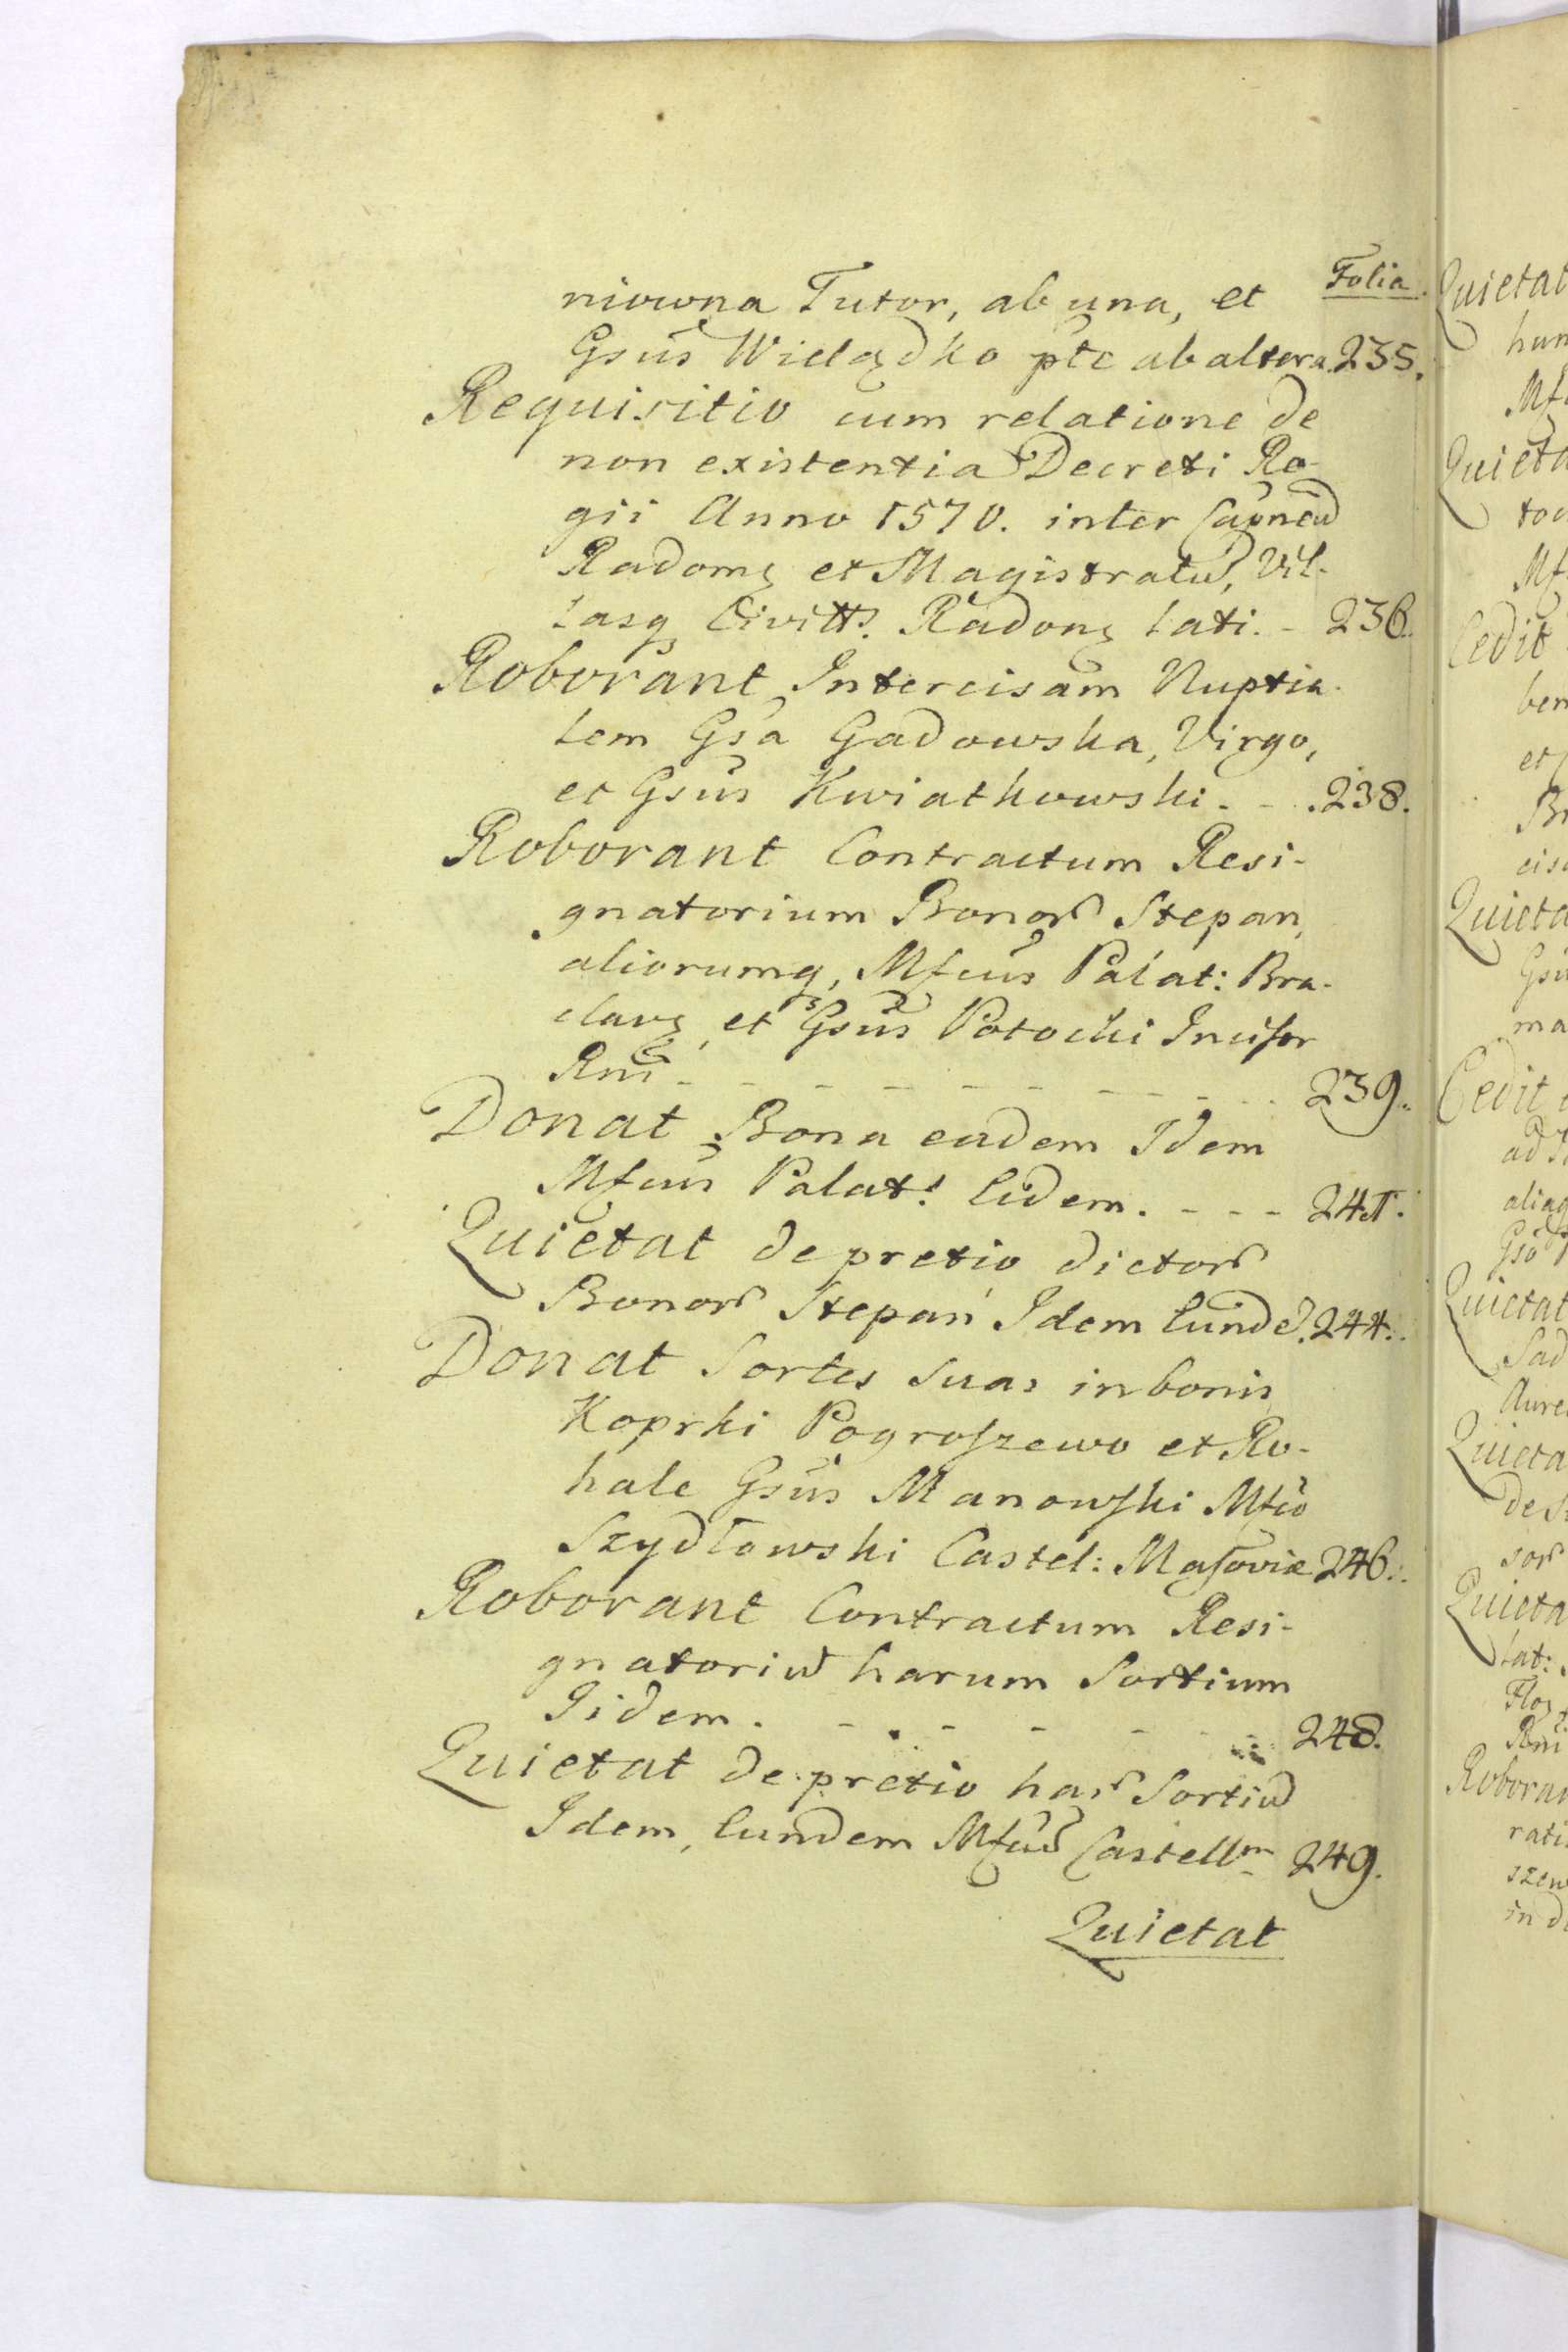 Folia.
niowna Tutor, ab una, et
Gsūs Wielądko pte ab altera. 235.
Requisitio cum relatione de
non existentia Decreti Re-
gii Anno 1570. inter
Radomę et Magistratū, Vil-
lasq Civitts. Radomę lati. - 236.
Roborant Intercisam Nuptia-
lem Gsa Gadowska, Virgo,
et Gsūs Kwiatkowski. - . 238.
Roborant Contractum Resi-
gnatorium Bonor Stepan,
aliorumq, Mfcus Palat: Bra-
clavę, et Gsūs Potocki Incisor
Rni - - - - - - - - - 239.
Donat Bona eadem Idem
Mfcus Palat: Eidem. - - - 241.
Quietat de pretio dictor
Bonor Stepań Idem Eunde. 244.
Donat Sortes suas in bonis
Koprki Pogroszewo et Ro-
kale Gsūs Manowski Mfco
Szydłowski Castel: Masoviæ 246.
Roborant Contractum Resi-
gnatoriū harum Sortium
Iidem. - . - - - - - 248.
Quietat de pretio har Sortiū
Idem, Eundem Mfcū Castellm 249.
Quietat
Quietat
Cedit
ben
et
Quieta
ma
Cedit
Quietat
Sad
Quieta
Quieta
lat:
Rni
Roboran
rati
szew